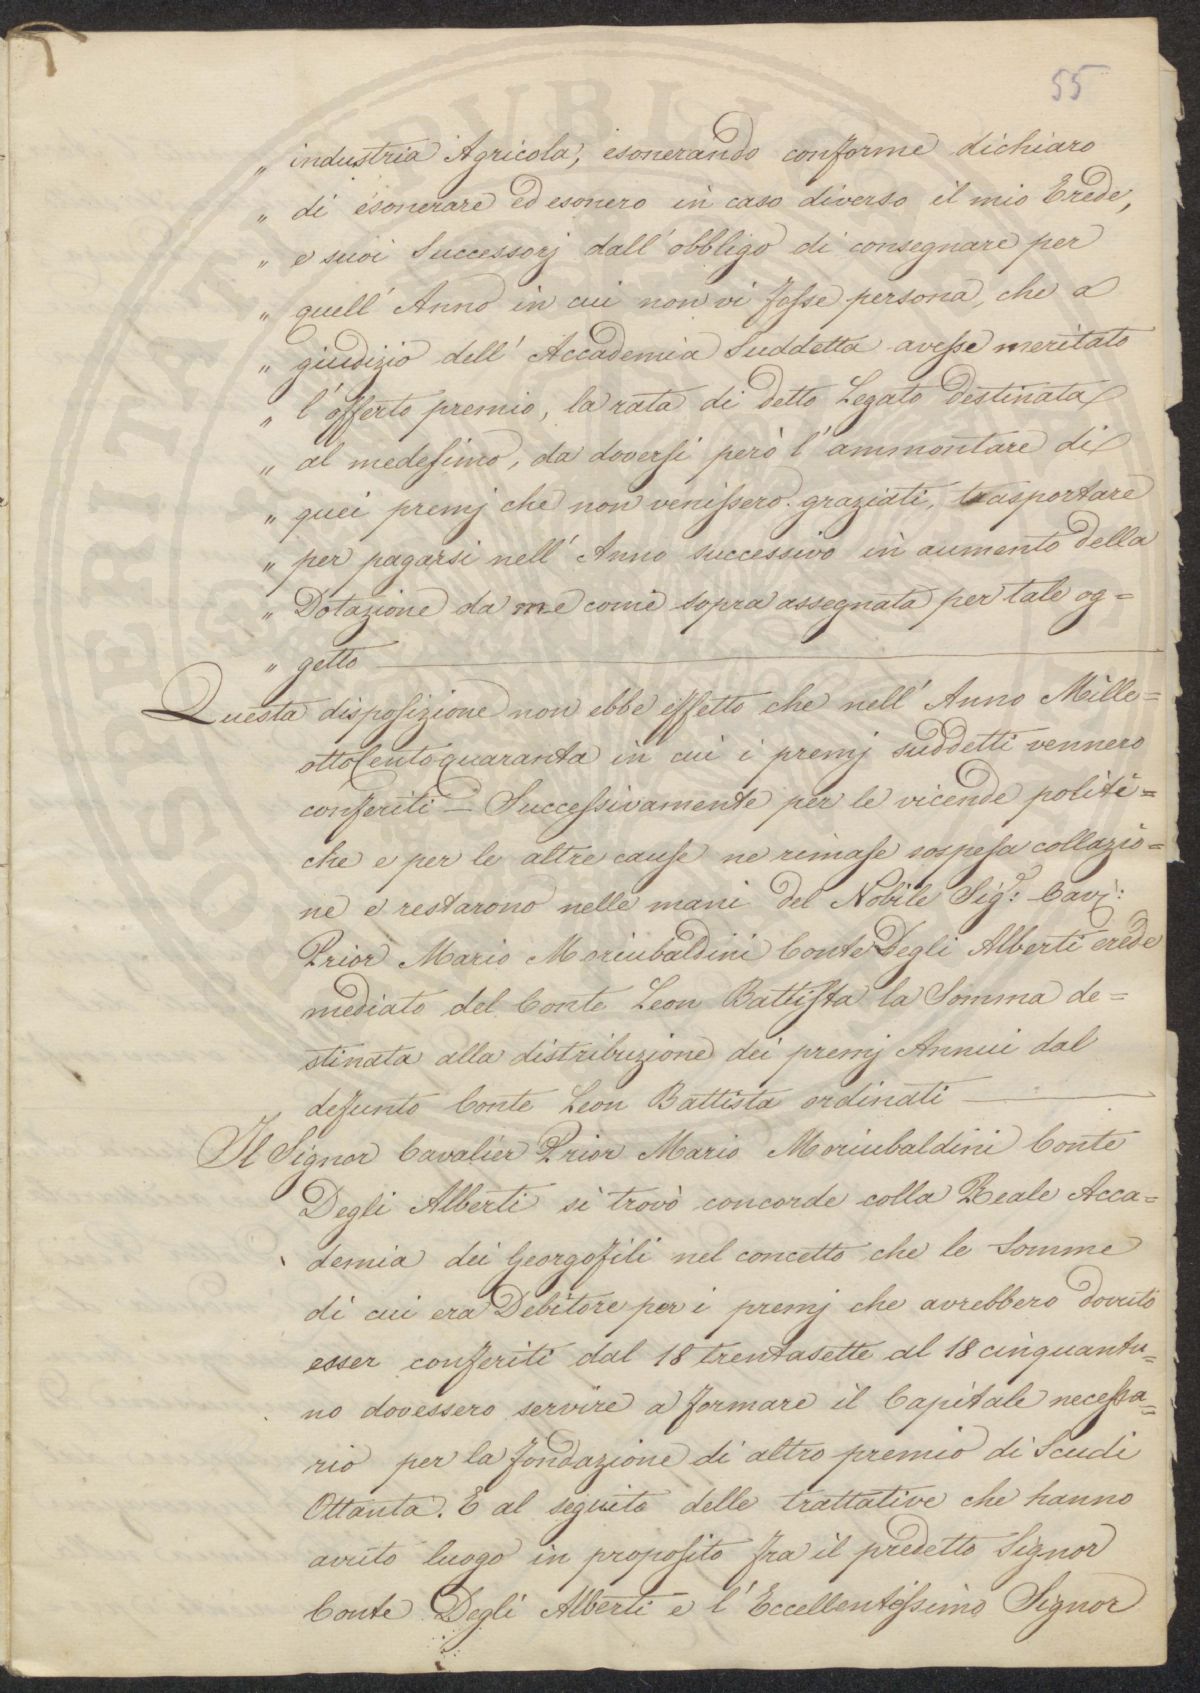 55
„ industria Agricola, esonerando conforme dichiaro
„ di esonerare ed esonero in caso diverso il mio Erede,
„ e suoi Successorj dall' obbligo di consegnare per
„ quell' Anno in cui non vi fosse persona, che a
„ giudizio dell' Accademia Suddetta avesse meritato
„ l'offerto premio, la rata di detto Legato destinata
„ al medesimo, da doversi però l'ammontare di
„ quei premj che non venissero graziati, trasportare
„ per pagarsi nell' Anno successivo in aumento della
„ Dotazione da me come sopra assegnata per tale og=
„ getto
Questa disposizione non ebbe effetto che nell' Anno Mille=
ottoCentoquaranta in cui i premj suddetti vennero
conferiti — Successivamente per le vicende politi=
che e per le altre cause ne rimase sospesa collazio=
ne e restarono nelle mani del Nobile Sig:r Cav:
Prior Mario Moriubaldini Conte Degli Alberti erede
mediato del Conte Leon Battista la Somma de=
stinata alla distribuzione dei premj Annui dal
defunto Conte Leon Battista ordinati
Il Signor Cavalier Prior Mario Moriubaldini Conte
Degli Alberti si trovò concorde colla Reale Acca=
demia dei Georgofili nel concetto che le Somme
di cui era Debitore per i premj che avrebbero dovuto
esser conferiti dal 18 trentasette al 18 cinquantu=
no dovessero servire a formare il Capitale necessa=
rio per la fondazione di altro premio di Scudi
Ottanta. E al seguito delle trattative che hanno
avuto luogo in proposito fra il predetto Signor
Conte Degli Alberti e l'Eccellentissimo Signor